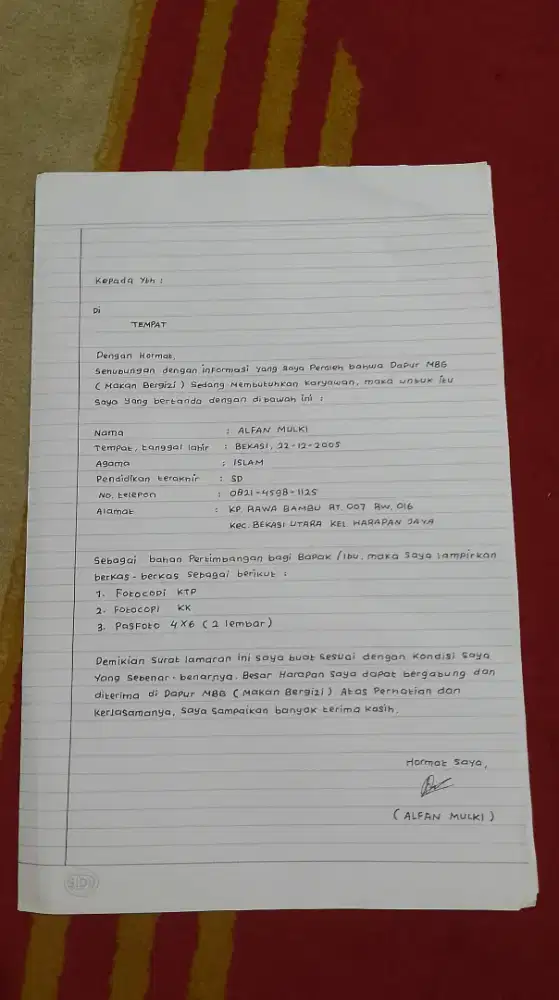 Kepada Yth :
Di
TEMPAT
Dengan Hormat,
Sehubungan dengan informasi yang saya Peroleh bahwa Dapur MBG
( Makan Bergizi ) Sedang Membutuhkan Karyawan, maka untuk itu
Saya yang bertanda dengan dibawah ini :
Nama : ALFAN MULKI
Tempat, tanggal lahir : BEKASI, 22-12-2005
Agama : ISLAM
Pendidikan terakhir : SD
No. telepon : 0821-4598-1125
Alamat : KP. RAWA BAMBU RT. 007 RW. 016
Kec. BEKASI UTARA KEL HARAPAN JAYA
Sebagai bahan Pertimbangan bagi Bapak /Ibu. maka Saya lampirkan
berkas-berkas Sebagai berikut :
1. Fotocopi KTP
2. Fotocopi KK
3. PasFoto 4X6 ( 2 lembar )
Demikian Surat lamaran ini saya buat sesuai dengan Kondisi Saya
Yang Sebenar-benarnya. Besar Harapan Saya dapat bergabung dan
diterima di Dapur MBG ( Makan Bergizi ) Atas Perhatian dan
Kerjasamanya, Saya Sampaikan banyak terima Kasih.
Hormat Saya,
( ALFAN MULKI )
SIDU